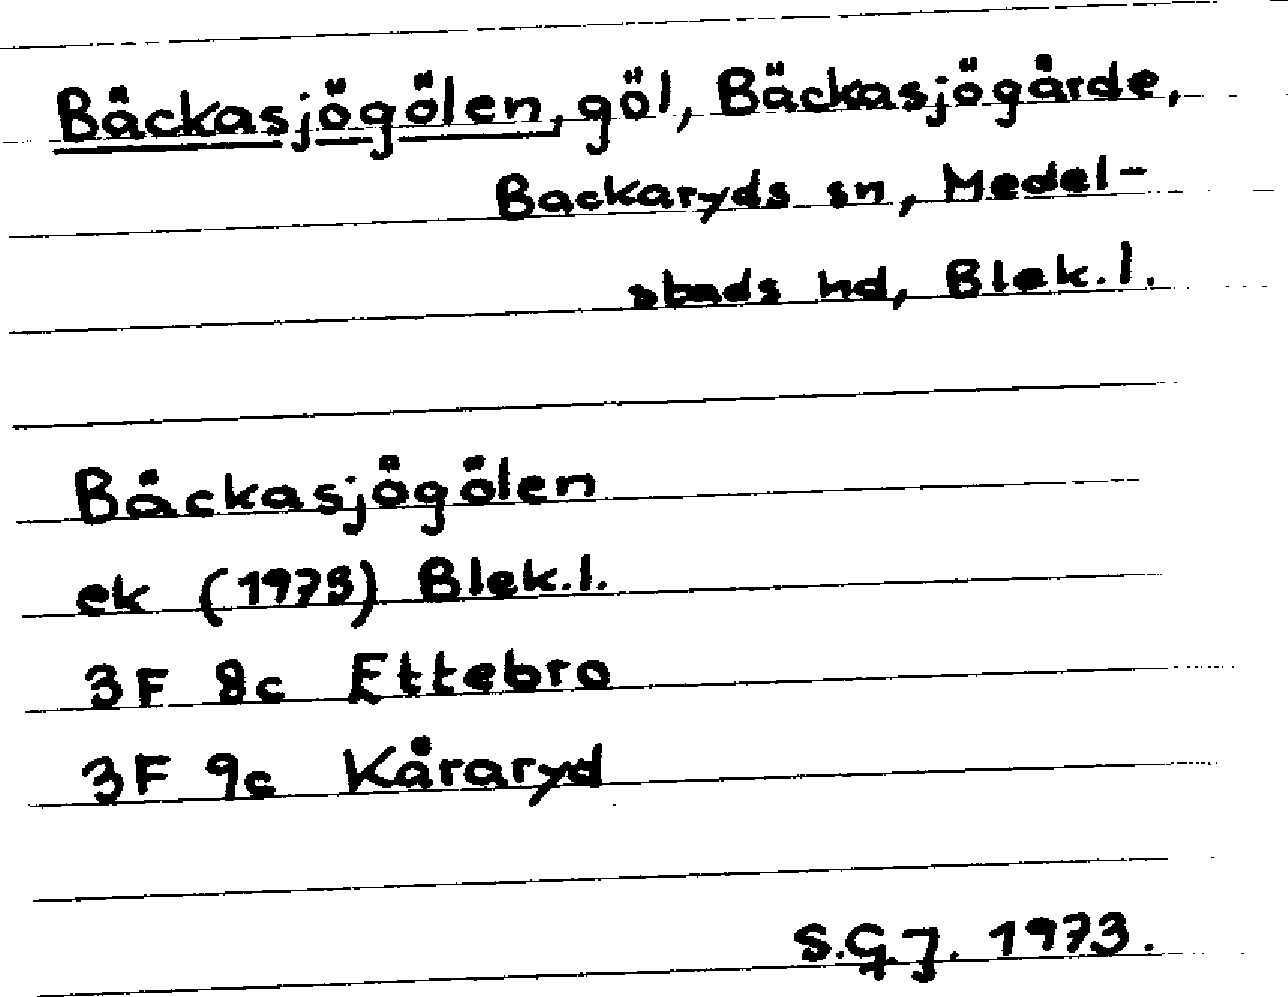 Bäckasjögölen, göl, Bäckasjögärde,
Backaryds sn, Medel-
stads hd, Blek.l.
Bäckasjögölen
ek (1973) Blek.l.
3F 8c Ettebro
3F 9c Kåraryd
S.G.J. 1973.